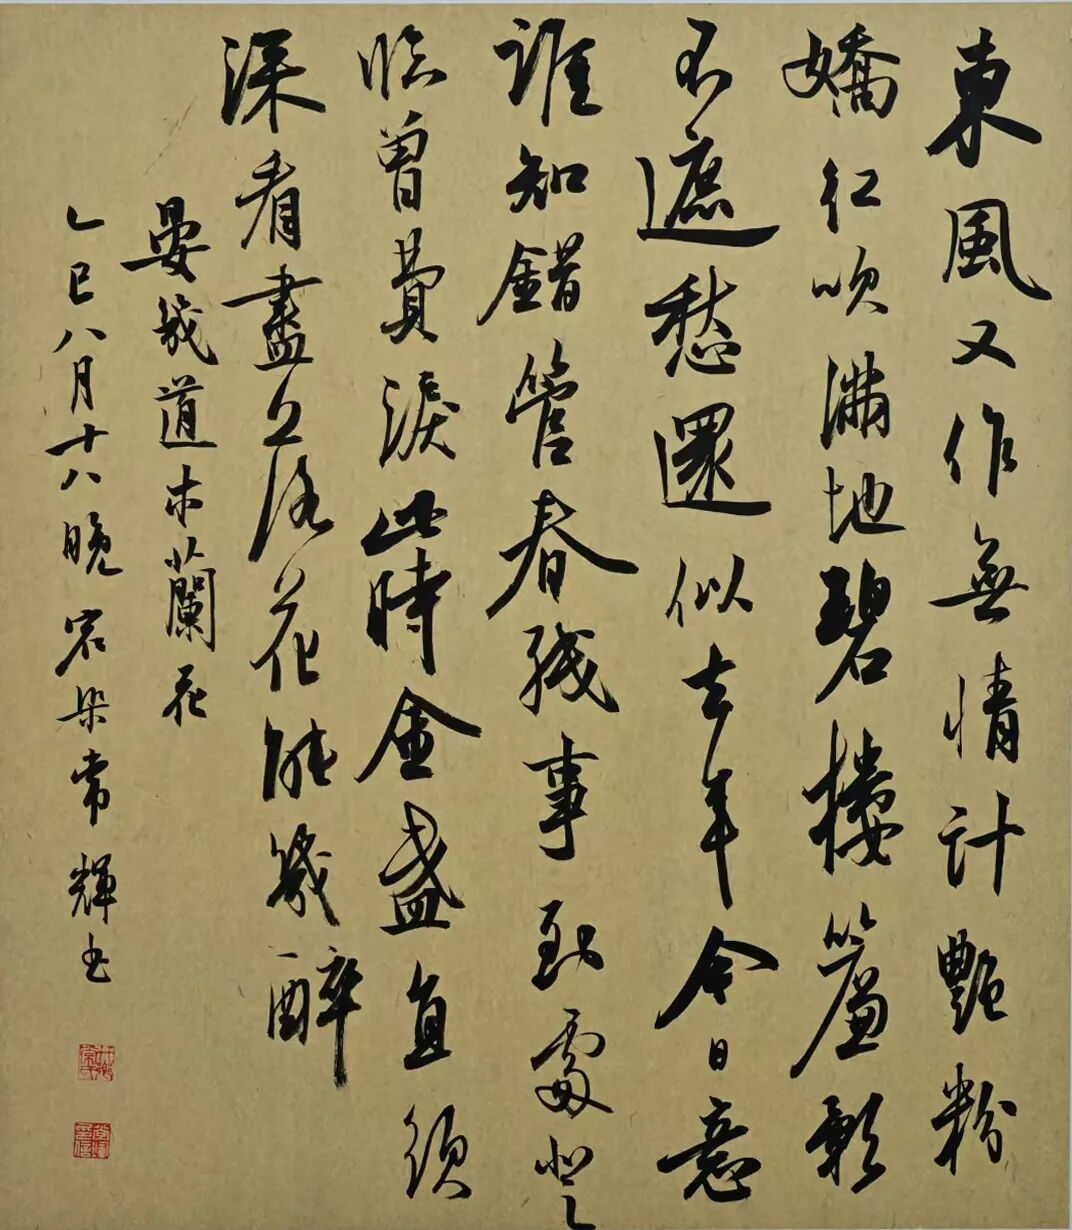 東風又作無情計艷粉
嬌紅吹滿地碧樓簾影
不遮愁還似去年今日意
誰知錯管春殘事到處登
臨曾費淚此時金盞直須
深看盡落花能幾醉
晏幾道木蘭花
乙巳八月十八晚宕渠常輝書